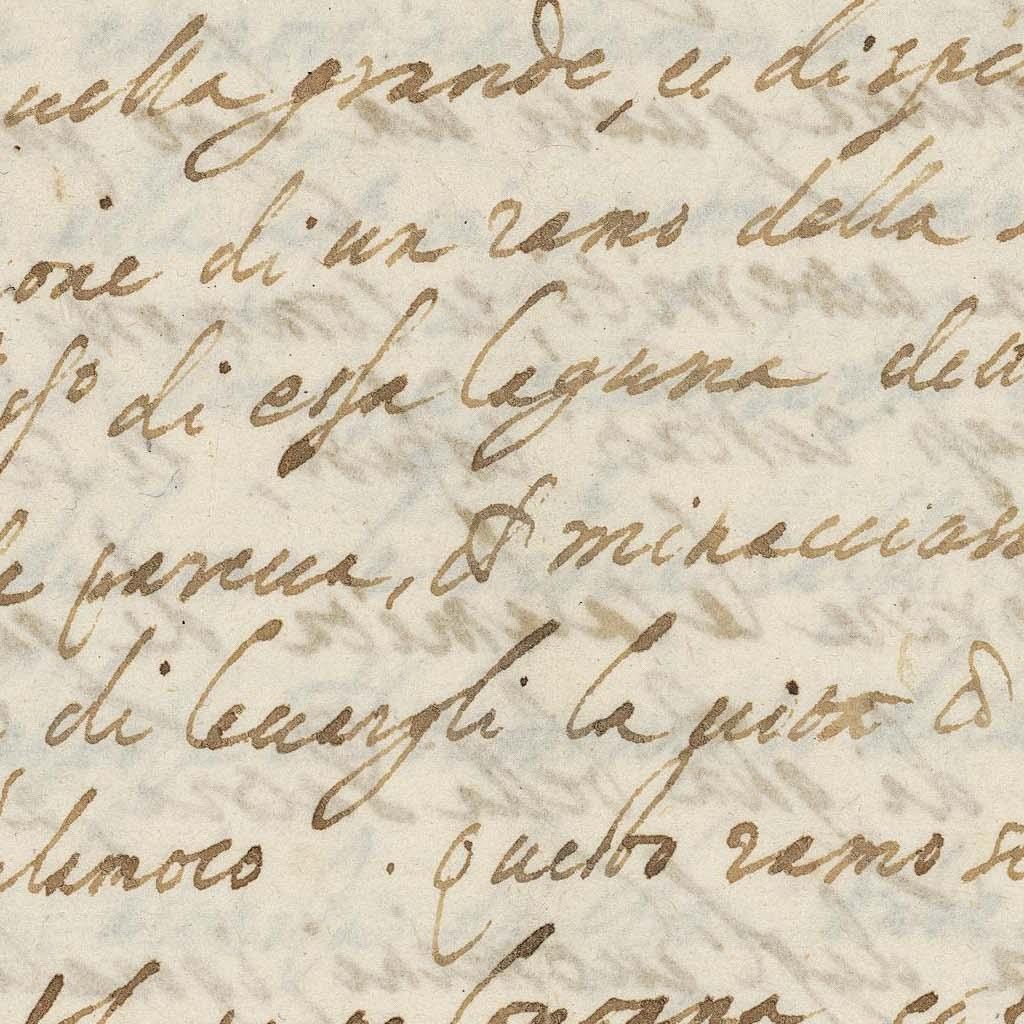 uella grande, et dispe
one di un ramo della
di essa laguna dett
pareua, & minaccias
di leuargli la uita &
alamoco . questo ramo